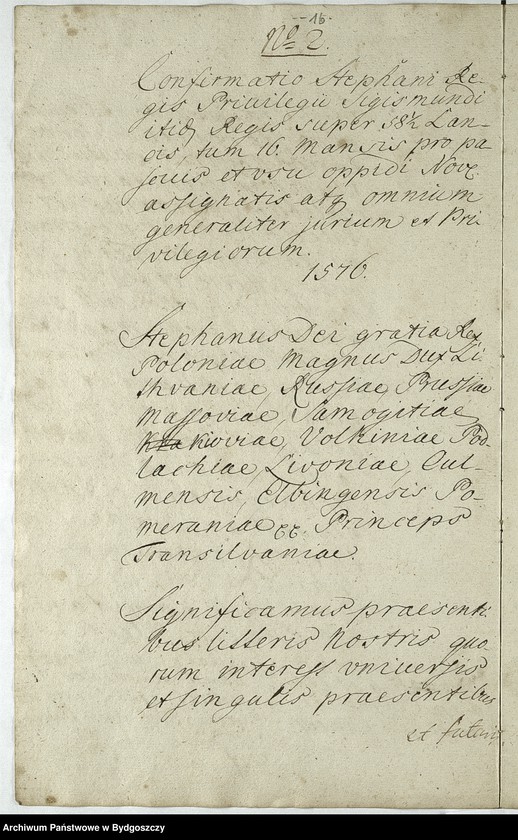 16.
No 2.
Confirmatio Stephani Re-
gis Privilegii Sigismundi
itidq Regis super 58½ Lan-
eis, tum 16. Mansis pro pa-
scuis et usu oppidi Nove
assignatis atq omnium
generaliter jurium et Pri-
vilegiorum.
1576.
Stephanus Dei gratia Rex
Poloniae Magnus Dux Li-
thvaniae, Russiae, Prussiae
Massoviae, Samogitiae
Kioviae, Volhiniae Pod-
lachiae, Livoniae, Cul-
mensis, Elbingensis Po-
meraniae Princeps
Transilvaniae.
Significamus praesenti-
bus litteris Nostris quo-
rum interest vniversis
et singulis praesentibus
et futuris
Archiwum Państwowe w Bydgoszczy